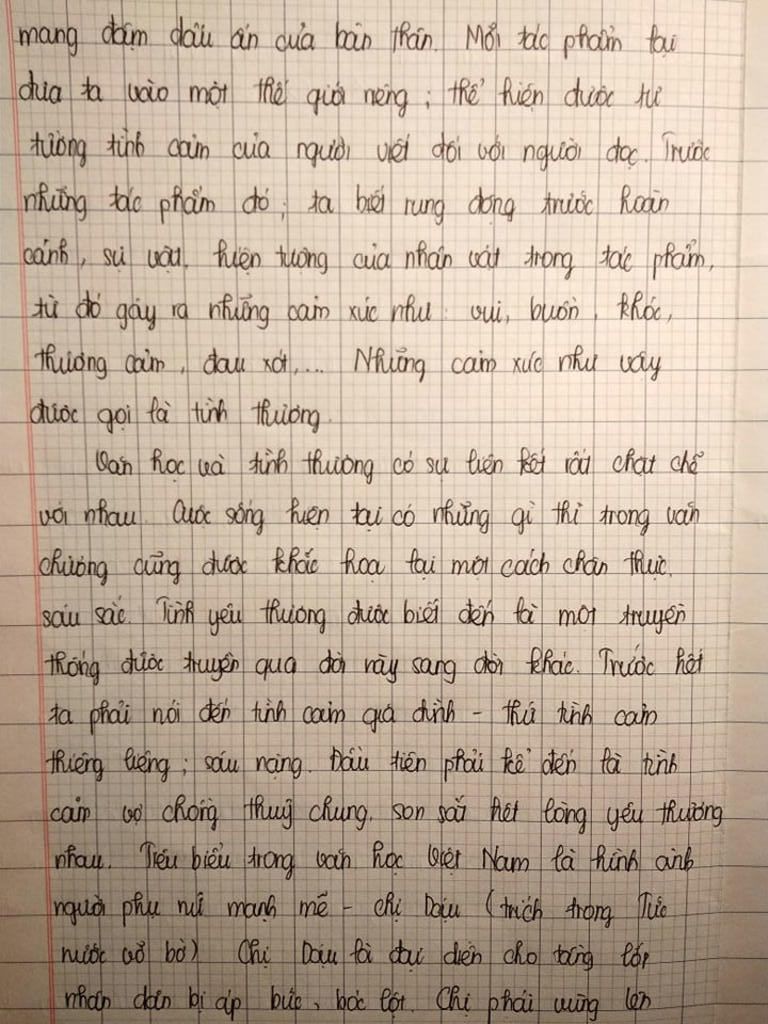 mang đậm dấu ấn của bản thân. Mỗi tác phẩm lại
đưa ta vào một thế giới riêng; thể hiện được tư
tưởng tình cảm của người viết đối với người đọc. Trước
những tác phẩm đó; ta biết rung động trước hoàn
cảnh, sự vật, hiện tượng của nhân vật trong tác phẩm,
từ đó gây ra những cảm xúc như: vui, buồn, khóc,
thương cảm, đau xót,... Những cảm xúc như vậy
được gọi là tình thương.
Văn học và tình thương có sự liên kết rất chặt chẽ
với nhau. Cuộc sống hiện tại có những gì thì trong văn
chương cũng được khắc họa lại một cách chân thực,
sâu sắc. Tình yêu thương được biết đến là một truyền
thống được truyền qua đời này sang đời khác. Trước hết
ta phải nói đến tình cảm gia đình - thứ tình cảm
thiêng liêng; sâu nặng. Đầu tiên phải kể đến là tình
cảm vợ chồng thuỷ chung, son sắt hết lòng yêu thương
nhau. Tiêu biểu trong văn học Việt Nam là hình ảnh
người phụ nữ mạnh mẽ - chị Dậu (trích trong Tức
nước vỡ bờ) Chị Dậu là đại diện cho tầng lớp
nhân dân bị áp bức, bóc lột. Chị phải vùng lên